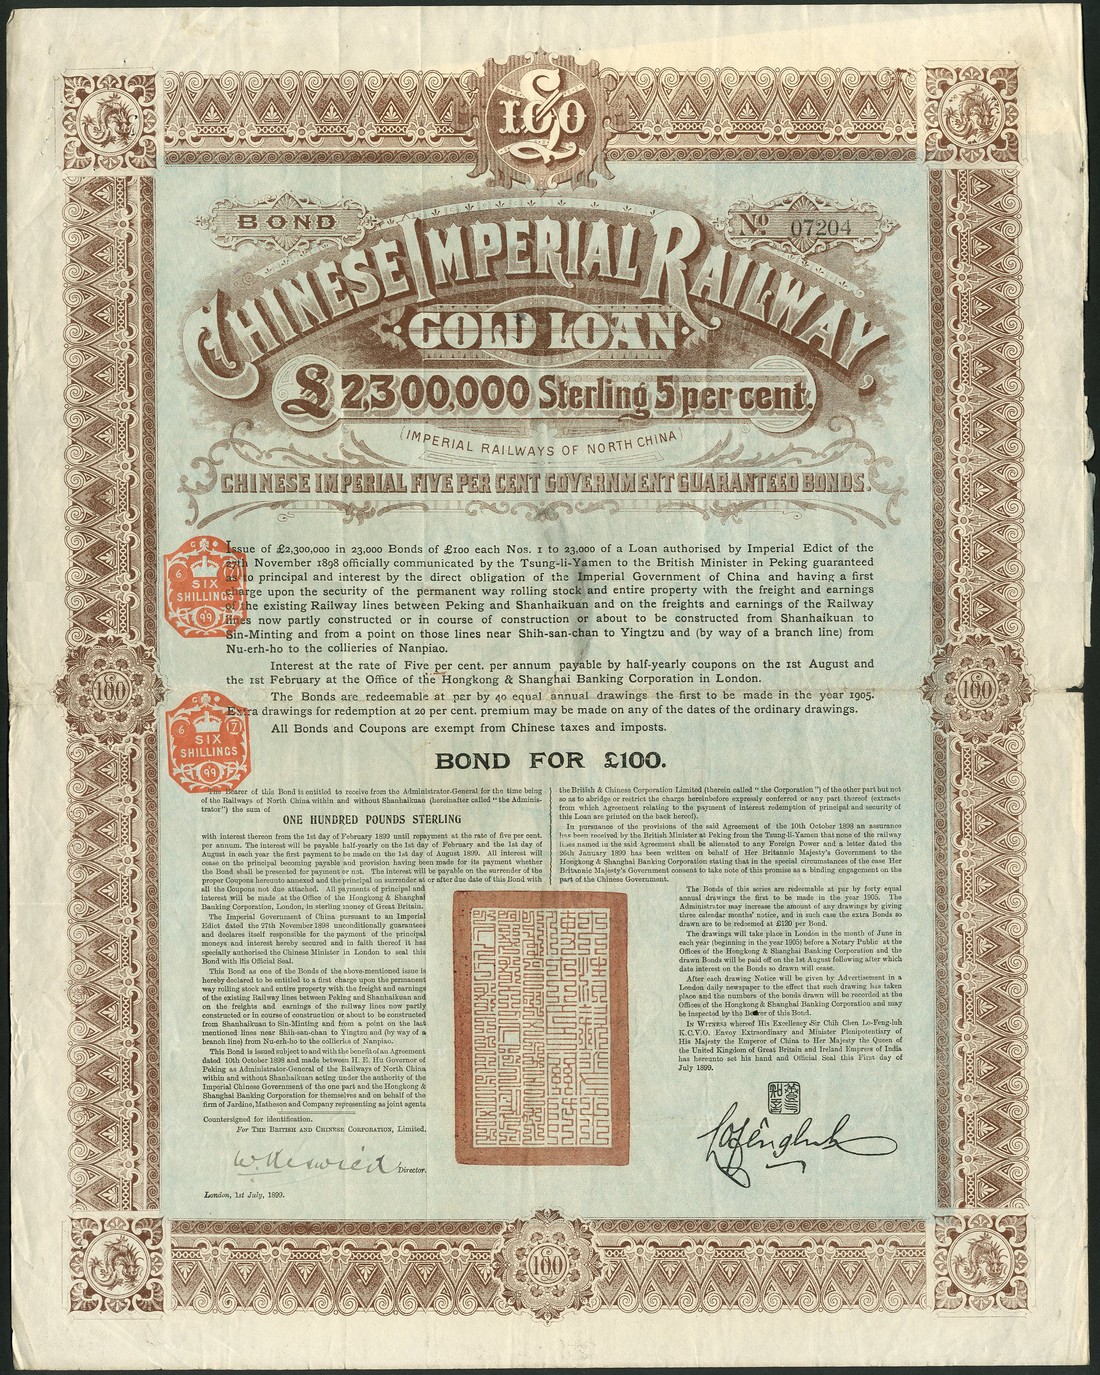 £100
BOND
No. 07204
CHINESE IMPERIAL RAILWAY,
GOLD LOAN
£2,300,000 Sterling 5 per cent.
(IMPERIAL RAILWAYS OF NORTH CHINA)
CHINESE IMPERIAL FIVE PER CENT GOVERNMENT GUARANTEED BONDS.
Issue of £2,300,000 in 23,000 Bonds of £100 each Nos. 1 to 23,000 of a Loan authorised by Imperial Edict of the
27th November 1898 officially communicated by the Tsung-li-Yamen to the British Minister in Peking guaranteed
as to principal and interest by the direct obligation of the Imperial Government of China and having a first
charge upon the security of the permanent way rolling stock and entire property with the freight and earnings
of the existing Railway lines between Peking and Shanhaikuan and on the freights and earnings of the Railway
lines now partly constructed or in course of construction or about to be constructed from Shanhaikuan to
Sin-Minting and from a point on those lines near Shih-san-chan to Yingtzu and (by way of a branch line) from
Nu-erh-ho to the collieries of Nanpiao.
Interest at the rate of Five per cent. per annum payable by half-yearly coupons on the 1st August and
the 1st February at the Office of the Hongkong & Shanghai Banking Corporation in London.
The Bonds are redeemable at par by 40 equal annual drawings the first to be made in the year 1905.
Extra drawings for redemption at 20 per cent. premium may be made on any of the dates of the ordinary drawings.
All Bonds and Coupons are exempt from Chinese taxes and imposts.
6 7
SIX
SHILLINGS
99
6 7
SIX
SHILLINGS
99
100
100
BOND FOR £100.
The Bearer of this Bond is entitled to receive from the Administrator-General for the time being
of the Railways of North China within and without Shanhaikuan (hereinafter called "the Adminis-
trator") the sum of
ONE HUNDRED POUNDS STERLING
with interest thereon from the 1st day of February 1899 until repayment at the rate of five per cent.
per annum. The interest will be payable half-yearly on the 1st day of February and the 1st day of
August in each year the first payment to be made on the 1st day of August 1899. All interest will
cease on the principal becoming payable and provision having been made for its payment whether
the Bond shall be presented for payment or not. The interest will be payable on the surrender of the
proper Coupons hereunto annexed and the principal on surrender at or after due date of this Bond with
all the Coupons not due attached. All payments of principal and
interest will be made at the Office of the Hongkong & Shanghai
Banking Corporation, London, in sterling money of Great Britain.
The Imperial Government of China pursuant to an Imperial
Edict dated the 27th November 1898 unconditionally guarantees
and declares itself responsible for the payment of the principal
moneys and interest hereby secured and in faith thereof it has
specially authorised the Chinese Minister in London to seal this
Bond with His Official Seal.
This Bond as one of the Bonds of the above-mentioned issue is
hereby declared to be entitled to a first charge upon the permanent
way rolling stock and entire property with the freight and earnings
of the existing Railway lines between Peking and Shanhaikuan and
on the freights and earnings of the railway lines now partly
constructed or in course of construction or about to be constructed
from Shanhaikuan to Sin-Minting and from a point on the last
mentioned lines near Shih-san-chan to Yingtzu and (by way of a
branch line) from Nu-erh-ho to the collieries of Nanpiao.
This Bond is issued subject to and with the benefit of an Agreement
dated 10th October 1898 and made between H. E. Hu Governor of
Peking as Administrator-General of the Railways of North China
within and without Shanhaikuan acting under the authority of the
Imperial Chinese Government of the one part and the Hongkong &
Shanghai Banking Corporation for themselves and on behalf of the
firm of Jardine, Matheson and Company representing as joint agents
Countersigned for identification.
For THE BRITISH AND CHINESE CORPORATION, Limited,
W. Keswick Director.
London, 1st July, 1899.
the British & Chinese Corporation Limited (therein called "the Corporation") of the other part but not
so as to abridge or restrict the charge hereinbefore expressly conferred or any part thereof (extracts
from which Agreement relating to the payment of interest redemption of principal and security of
this Loan are printed on the back hereof).
In pursuance of the provisions of the said Agreement of the 10th October 1898 an assurance
has been received by the British Minister at Peking from the Tsung-li-Yamen that none of the railway
lines named in the said Agreement shall be alienated to any Foreign Power and a letter dated the
26th January 1899 has been written on behalf of Her Britannic Majesty's Government to the
Hongkong & Shanghai Banking Corporation stating that in the special circumstances of the case Her
Britannic Majesty's Government consent to take note of this promise as a binding engagement on the
part of the Chinese Government.
The Bonds of this series are redeemable at par by forty equal
annual drawings the first to be made in the year 1905. The
Administrator may increase the amount of any drawings by giving
three calendar months' notice, and in such case the extra Bonds so
drawn are to be redeemed at £120 per Bond.
The drawings will take place in London in the month of June in
each year (beginning in the year 1905) before a Notary Public at the
Offices of the Hongkong & Shanghai Banking Corporation and the
drawn Bonds will be paid off on the 1st August following after which
date interest on the Bonds so drawn will cease.
After each drawing Notice will be given by Advertisement in a
London daily newspaper to the effect that such drawing has taken
place and the numbers of the bonds drawn will be recorded at the
Offices of the Hongkong & Shanghai Banking Corporation and may
be inspected by the Bearer of this Bond.
IN WITNESS whereof His Excellency Sir Chih Chen Lo-Feng-luh
K.C.V.O. Envoy Extraordinary and Minister Plenipotentiary of
His Majesty the Emperor of China to Her Majesty the Queen of
the United Kingdom of Great Britain and Ireland Empress of India
has hereunto set his hand and Official Seal this First day of
July 1899.
Lofêngluh
100